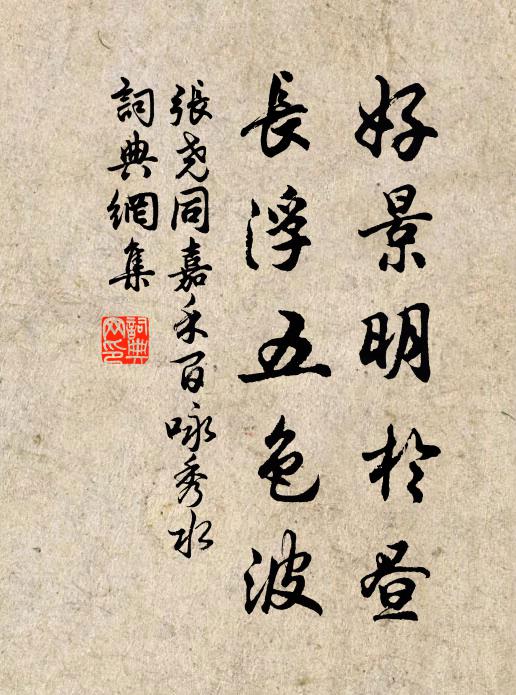 好景明於晝
長浮五色波
張尧同嘉禾百咏秀水
詞典網集
詞典網印